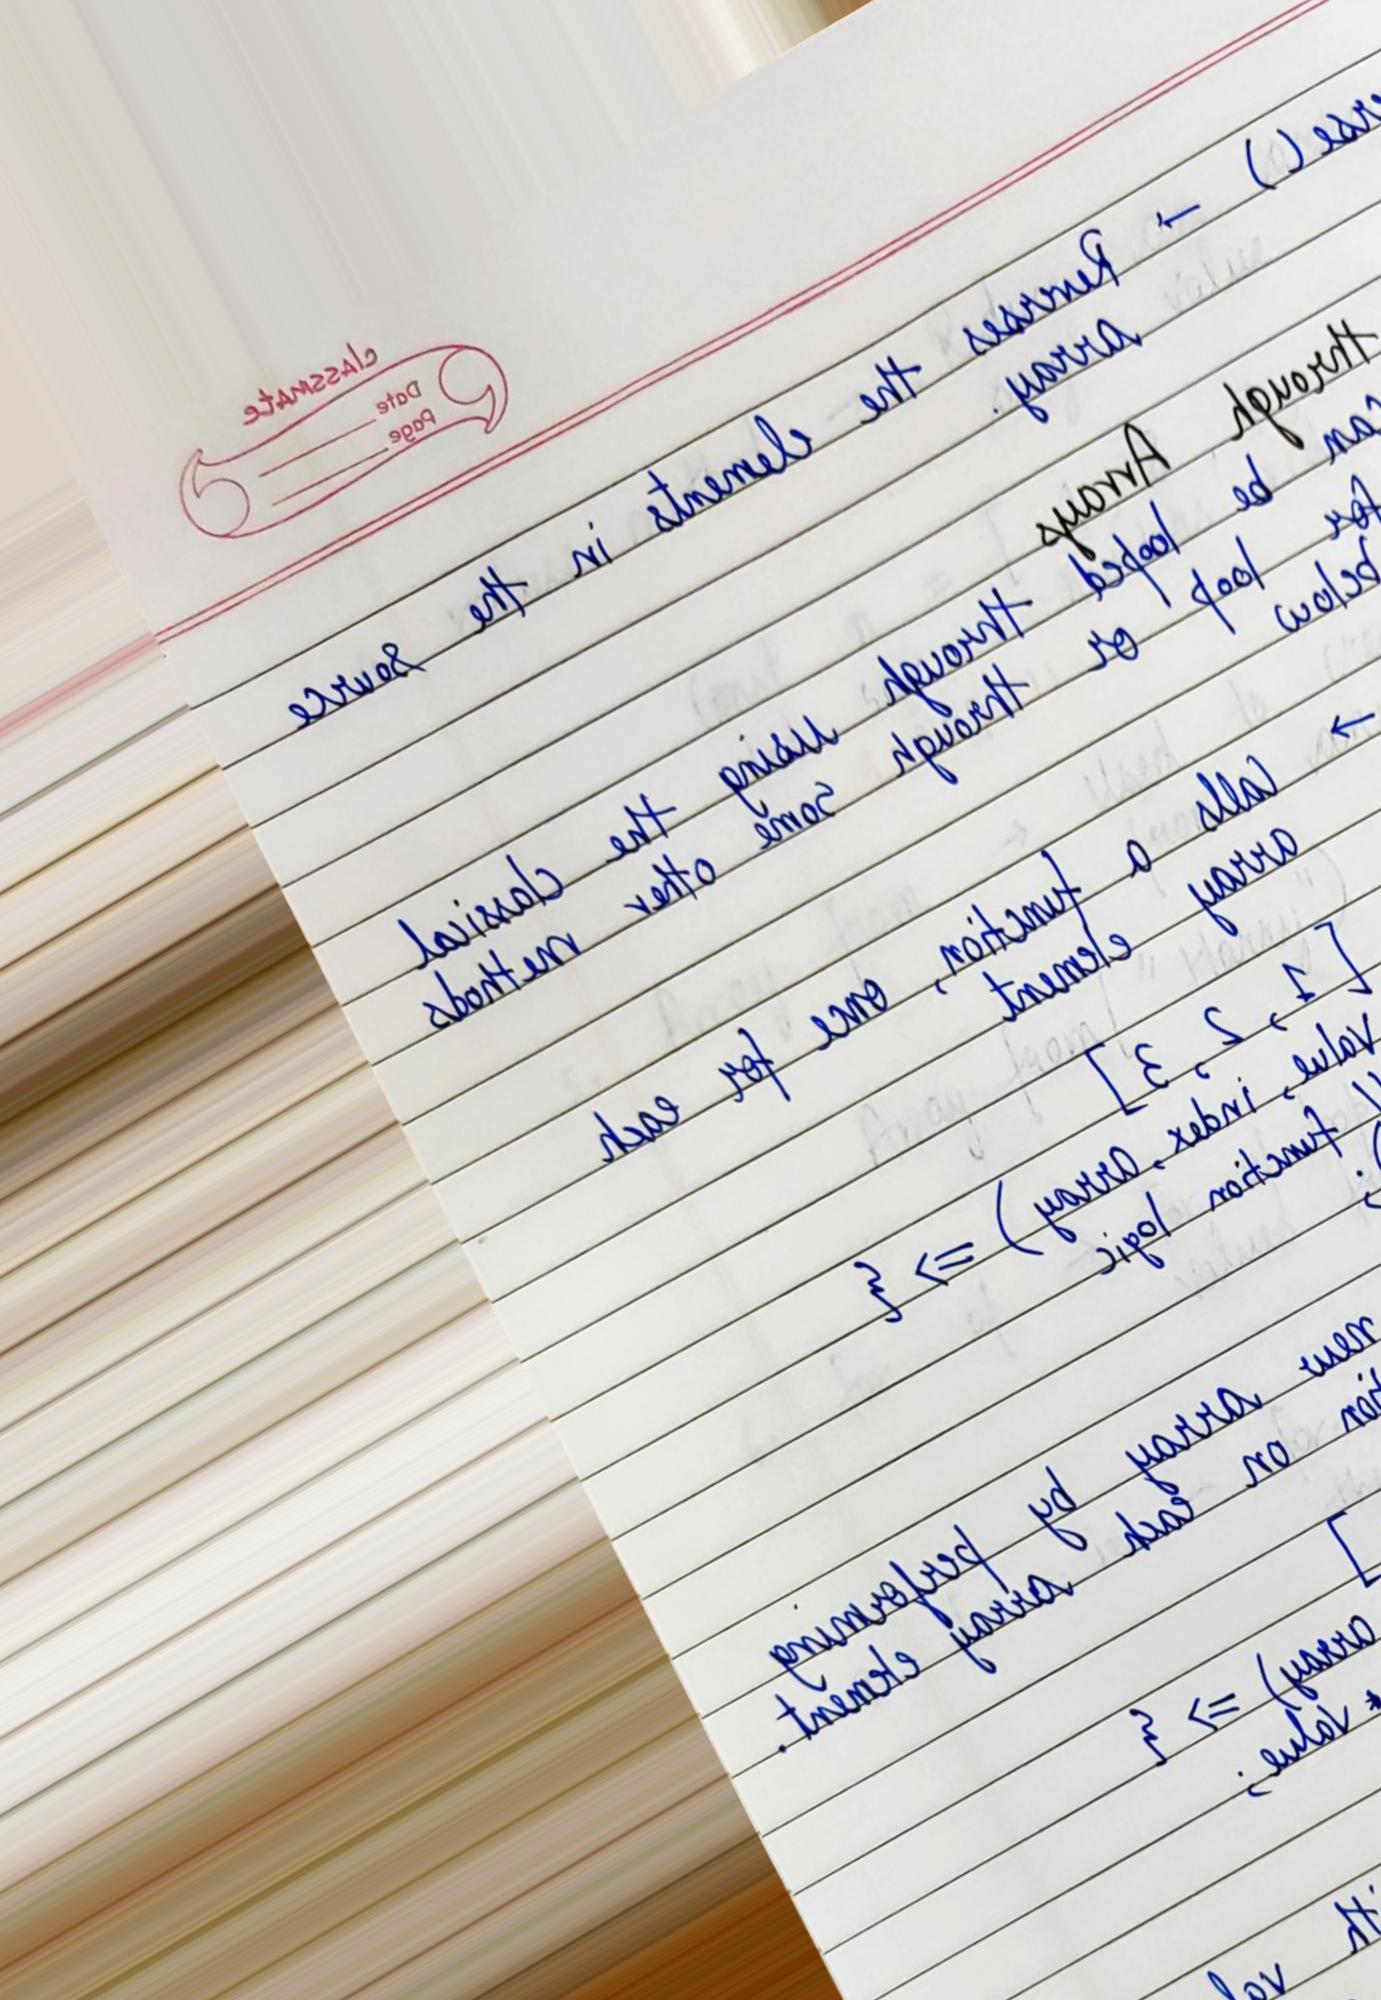 classmate
Date
Page
() → Reverses the elements in the source
array.
through Arrays
can be looped through using the classical
for loop or through some other methods
below
→ Calls a function, once for each
array element
[1, 2, 3]
value, index, array) => {
function logic
new array by performing
on each array element.
]
array) => {
* value;